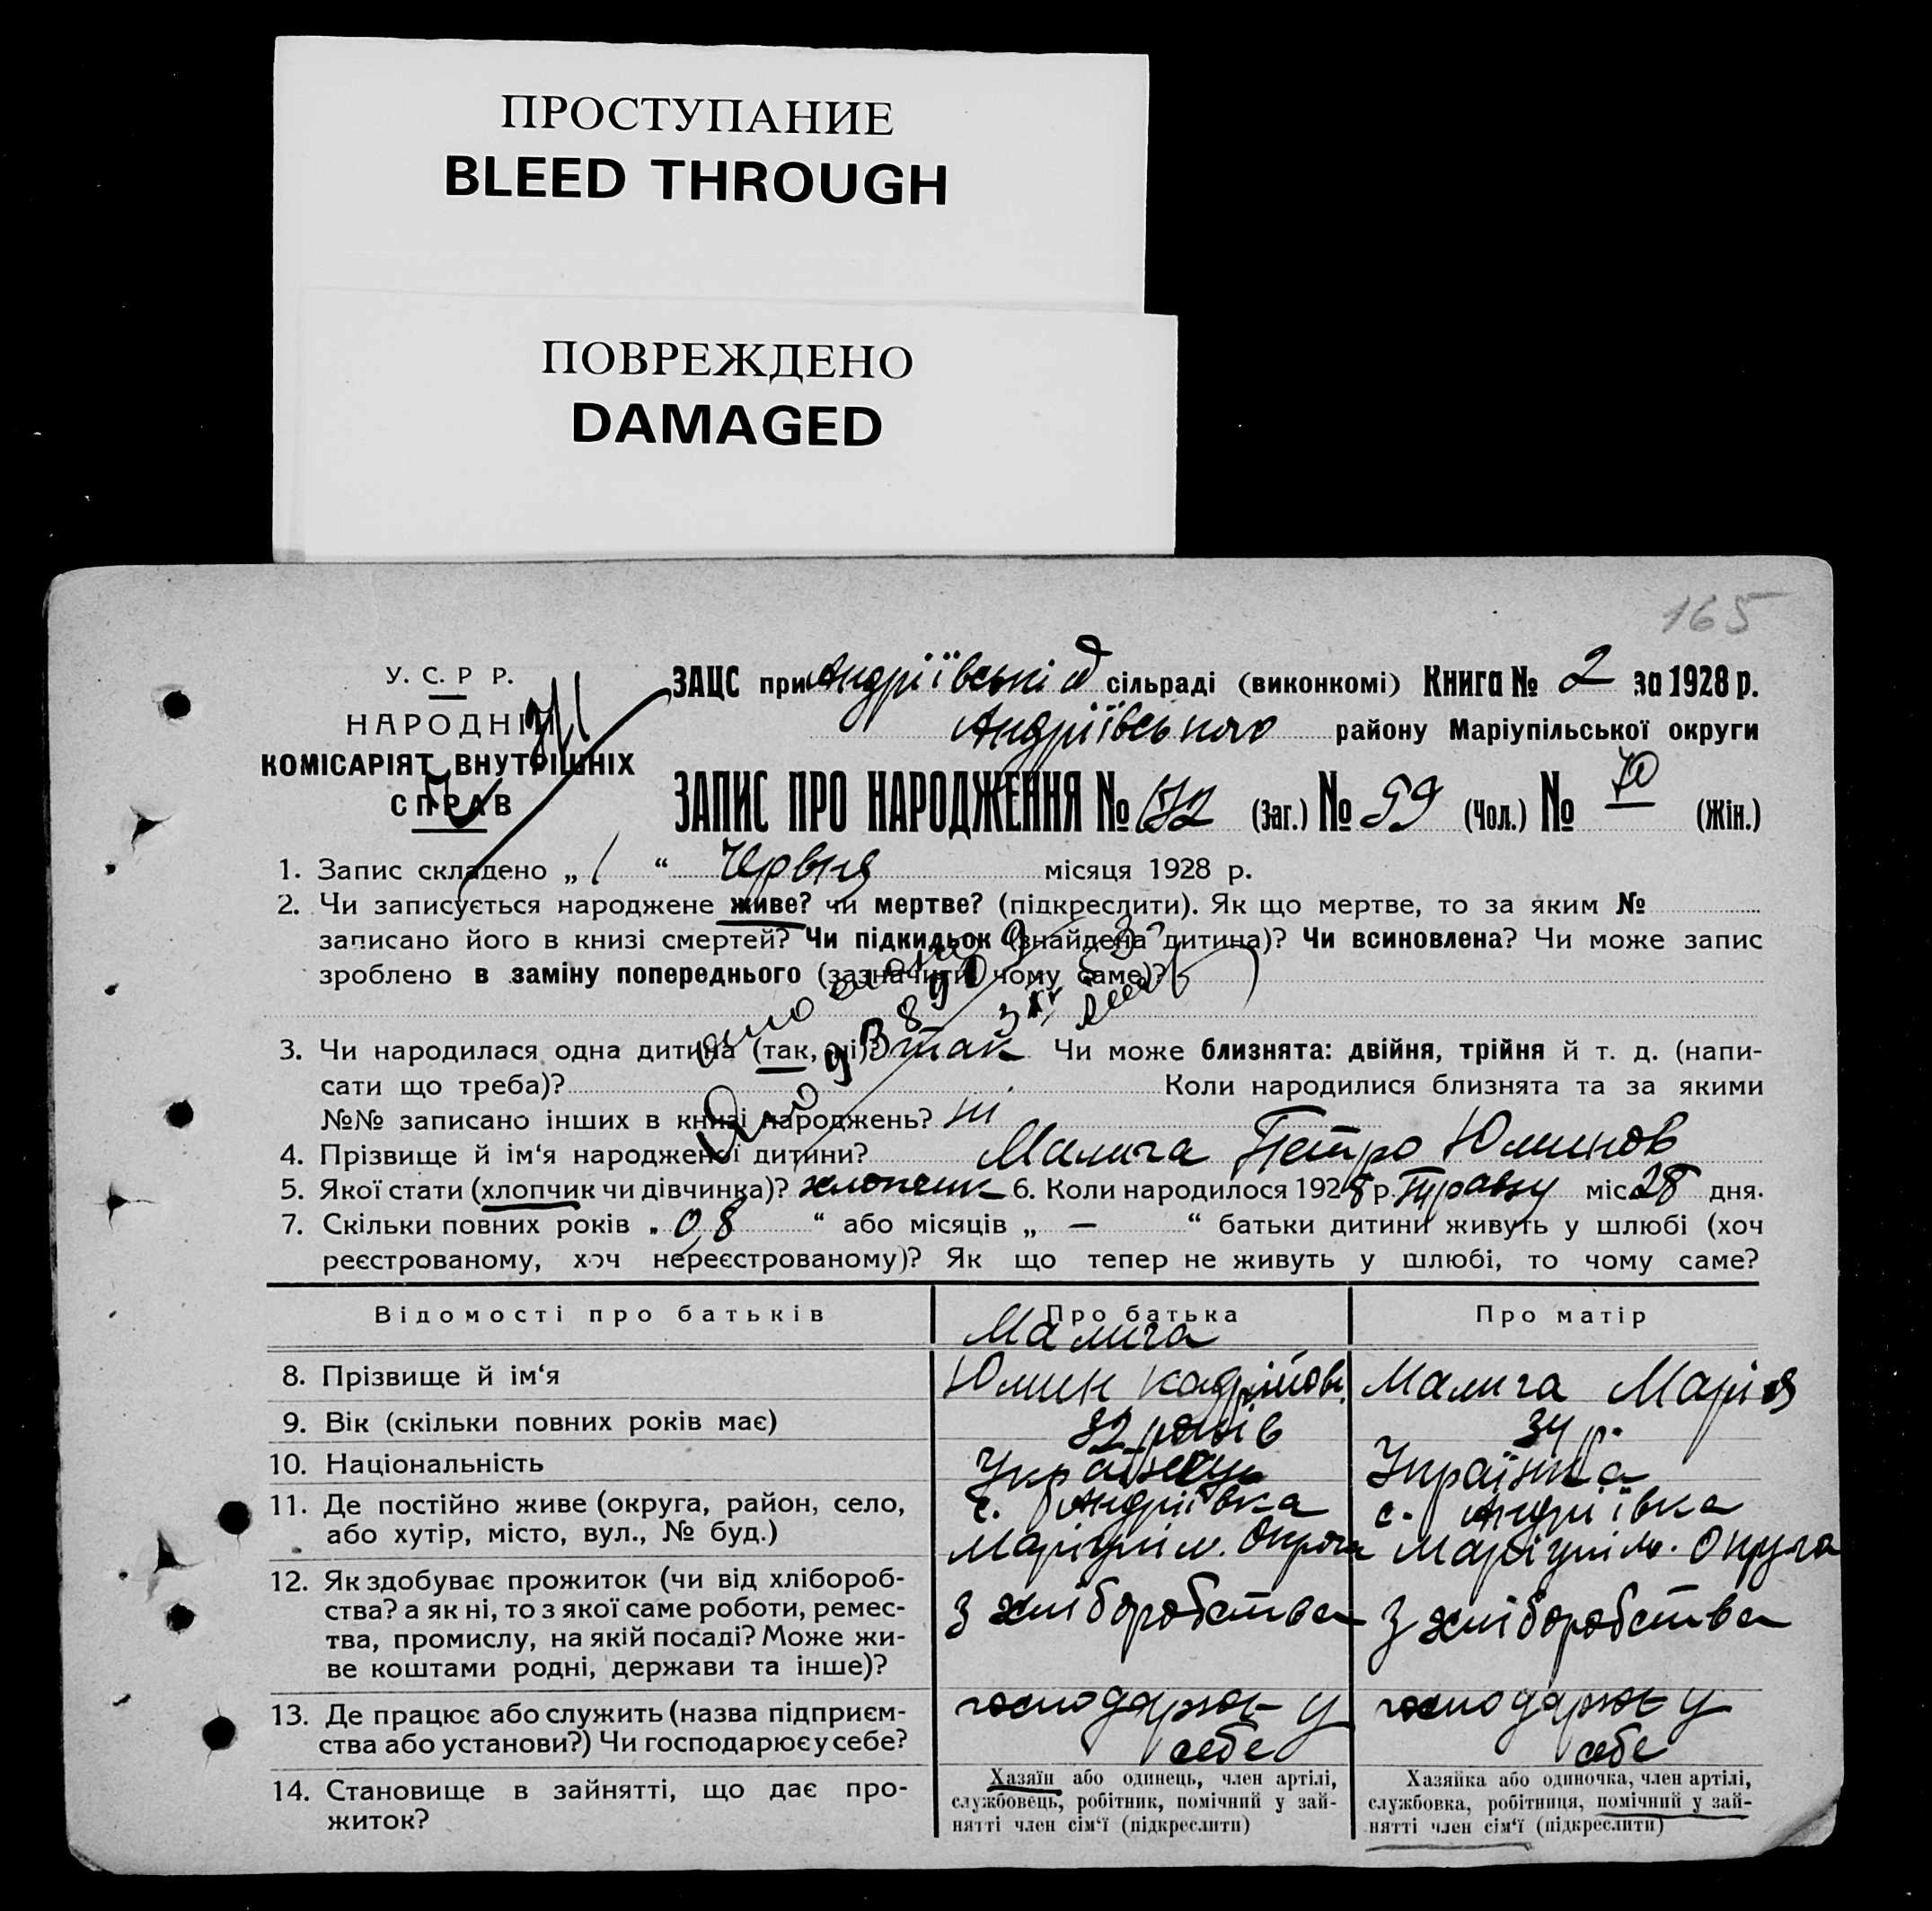 ПРОСТУПАНИЕ
BLEED THROUGH
ПОВРЕЖДЕНО
DAMAGED
165
У. С. Р Р.
НАРОДНІЙ
КОМІСАРІЯТ ВНУТРІШНІХ
СПРАВ
ЗАЦС при Андріївській сільраді (виконкомі) Книга № 2 за 1928 р.
Андріївського району Маріупільської округи
ЗАПИС ПРО НАРОДЖЕННЯ № (Заг.) № 99 (Чол.) № 70 (Жін.)
1. Запис складено „ 1 “ Червня місяця 1928 р.
2. Чи записується народжене живе? чи мертве? (підкреслити). Як що мертве, то за яким №
записано його в книзі смертей? Чи підкидьок (знайдена дитина)? Чи всиновлена? Чи може запис
зроблено в заміну попереднього (зазначити чому саме)?
3. Чи народилася одна дитина (так, ні)? так Чи може близнята: двійня, трійня й т. д. (напи-
сати що треба)? Коли народилися близнята та за якими
№№ записано інших в книзі народжень? ні
4. Прізвище й ім‘я народженої дитини? Малига Петро Юминов
5. Якої стати (хлопчик чи дівчинка)? хлопчик 6. Коли народилося 1928 р. Травня міс 28 дня.
7. Скільки повних років „ 08 “ або місяців „ — “ батьки дитини живуть у шлюбі (хоч
реєстрованому, хоч нереєстрованому)? Як що тепер не живуть у шлюбі, то чому саме?
Відомості про батьків Про батька Про матір
Малига
8. Прізвище й ім‘я Юмин Малига Марія
9. Вік (скільки повних років має) 32 років 34 р.
10. Національність Українець Українка
11. Де постійно живе (округа, район, село, с. Андріївка с. Андріївка
або хутір, місто, вул., № буд.) Маріупіл. Округа Маріупіл. Округа
12. Як здобуває прожиток (чи від хлібороб-
ства? а як ні, то з якої саме роботи, ремес- З хліборобства З хліборобства
тва, промислу, на якій посаді? Може жи-
ве коштами родні, держави та інше)?
13. Де працює або служить (назва підприєм- господарює у господарює у
ства або установи?) Чи господарює у себе? себе себе
14. Становище в зайнятті, що дає про-
житок?
Хазяїн або одинець, член артілі,
службовець, робітник, помічний у зай-
нятті член сім‘ї (підкреслити)
Хазяйка або одиночка, член артілі,
службовка, робітниця, помічний у зай-
нятті член сім‘ї (підкреслити)